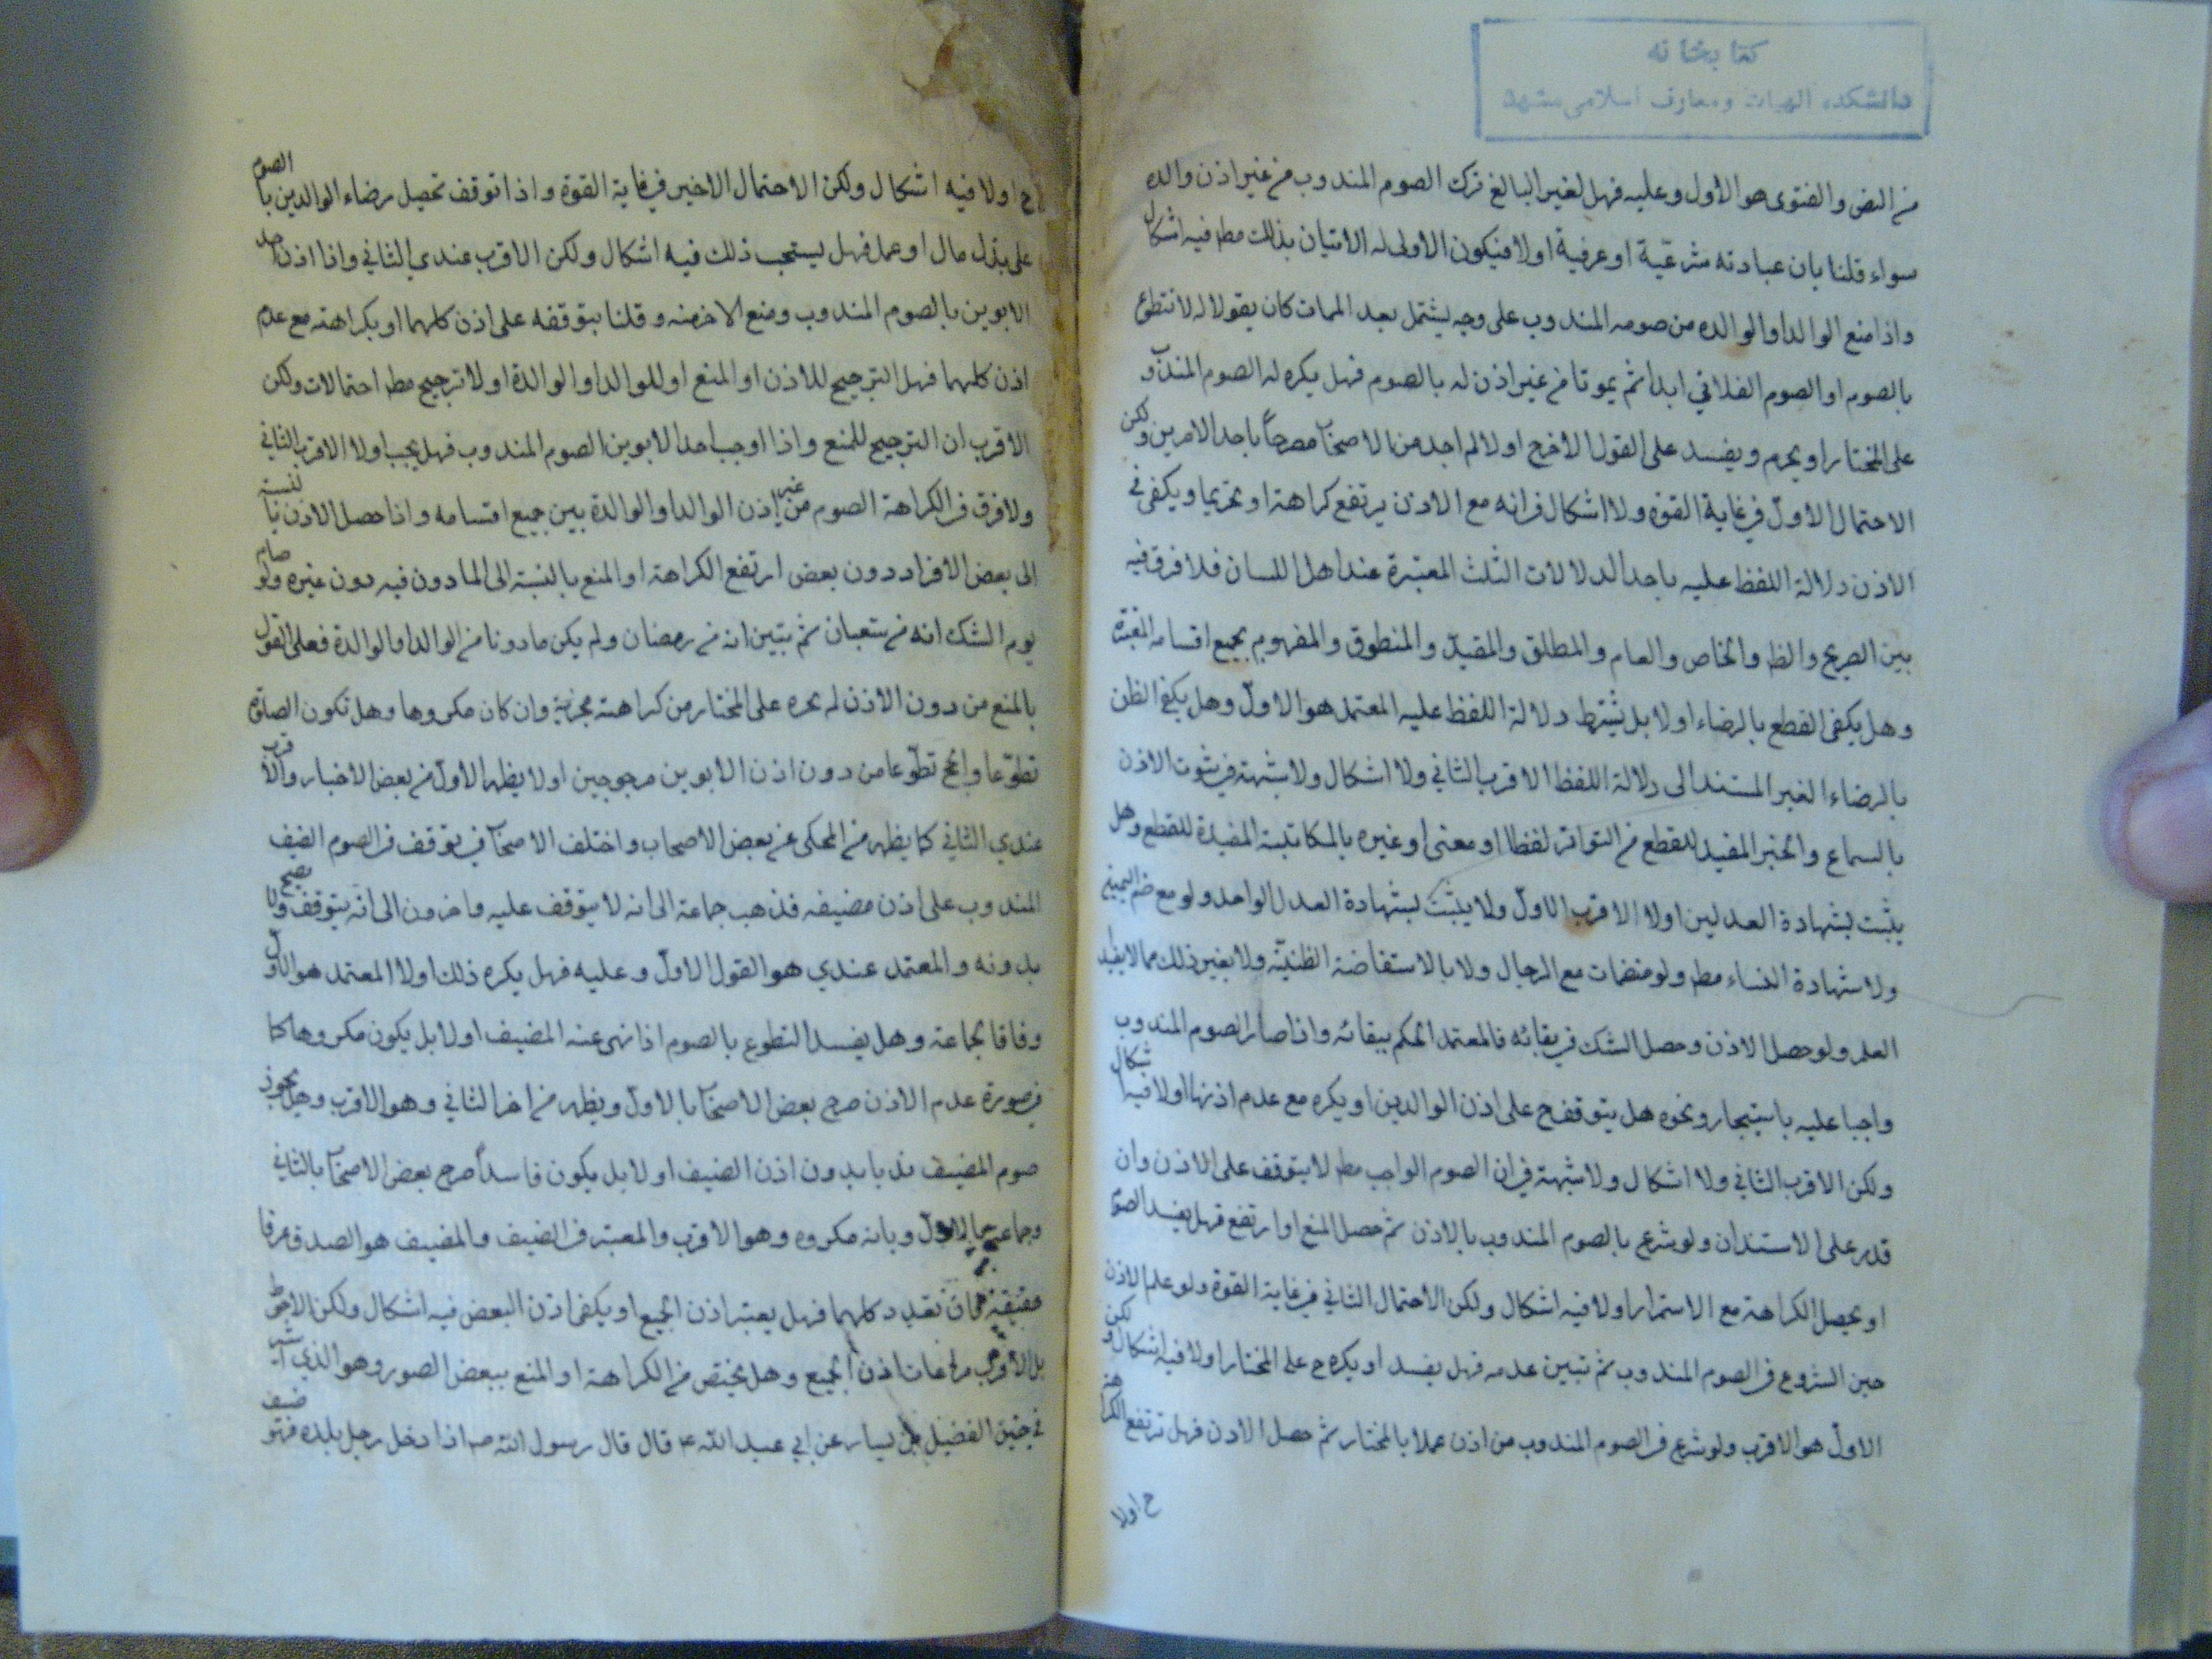 كتابخانه
دانشكده الهيات ومعارف اسلامى مشهد
من النص والفتوى هو الأول وعليه فهل لغير البالغ ترك الصوم المندوب من غير اذن والده
سواء قلنا بان عبادته شرعيّة او عرفية اولا فيكون الاولى له الاتيان بذلك مط فيه اشكال
واذا منع الوالد او الوالده من صومه المندوب على وجه يشتمل بعد الممات كان يقولا له لا تتطوع
بالصوم او الصوم الفلاني ابدا ثم يموتا من غير اذن له بالصوم فهل يكره له الصوم المندوب
على المختار او يحرم ويفسد على القول الاخر ح اولا لم اجد من الاصحاب مصرحاً باحد الامرين ولكن
الاحتمال الاول في غاية القوة ولا اشكال في انه مع الاذن يرتفع كراهة او تحريما ويكفى في
الاذن دلالة اللفظ عليه باحد الدلالات الثلث المعتبرة عند اهل اللسان فلا فرق فيه
بين الصريح والظ والخاص والعام والمطلق والمقيد والمنطوق والمفهوم بجميع اقسامه المعتبرة
وهل يكفى القطع بالرضاء اولا بل يشترط دلالة اللفظ عليه المعتمد هو الاول وهل يكفى الظن
بالرضاء الغير المستند الى دلالة اللفظ الاقرب الثاني ولا اشكال ولا شبهة في ثبوت الاذن
بالسماع والخبر المفيد للقطع من التواتر لفظا او معنى او غيره بالمكاتبة المفيدة للقطع وهل
يثبت بشهادة العدلين اولا الاقرب الاول ولا يثبت بشهادة العدل الواحد ولو مع ضم اليمين
ولا شهادة النساء مط ولو منضمات مع الرجال ولا بالاستفاضة الظنيّة ولا بغير ذلك مما لا يفيد
العلم ولو حصل الاذن وحصل الشك في بقائه فالمعتمد الحكم ببقائه واذا صار الصوم المندوب
واجبا عليه باستيجار ونحوه هل يتوقف ح على اذن الوالدين او يكره مع عدم اذنهما اولا فيه اشكال
ولكن الاقرب الثاني ولا اشكال ولا شبهة في ان الصوم الواجب مط لا يتوقف على الاذن وان
قدر على الاستئذان ولو شرع بالصوم المندوب بالاذن ثم حصل المنع او ارتفع فهل يفسد الصوم
او يحصل الكراهة مع الاستمرار اولا فيه اشكال ولكن الأحتمال الثاني في غاية القوة ولو علم الاذن
حين الشروع في الصوم المندوب ثم تبين عدمه فهل يفسد او يكره ح على المختار اولا فيه اشكال ولكن
الاول هو الاقرب ولو شرع في الصوم المندوب من اذن عملا بالمختار ثم حصل الاذن فهل ترتفع الكراهة
ح اولا
ح اولا فيه اشكال ولكن الاحتمال الاخير في غاية القوة واذا توقف تحصيل رضاء الوالدين بالصوم
على بذل مال او عمل فهل يستحب ذلك فيه اشكال ولكن الاقرب عندي الثاني واذا اذن احد
الابوين بالصوم المندوب ومنع الاخر منه وقلنا بتوقفه على اذن كليهما او بكراهته مع عدم
اذن كليهما فهل الترجيح للاذن او المنع او للوالد او الوالدة اولا ترجيح مط احتمالات ولكن
الاقرب ان الترجيح للمنع واذا اوجب احد الابوين الصوم المندوب فهل يجب اولا الاقرب الثاني
ولا فرق في الكراهة الصوم من غير إذن الوالد او الوالدة بين جميع اقسامه واذا حصل الاذن بالنسبة
الى بعض الافراد دون بعض ارتفع الكراهة او المنع بالنسبة الى المادون فيه دون غيره ولو صام
يوم الشك انه من شعبان ثم تبين انه من رمضان ولم يكن مادونا من الوالد او الوالدة فعلى القول
بالمنع من دون الاذن لم يجزه على المختار من كراهته مجزية وان كان مكروها وهل تكون الصلوة
تطوّعا والحج تطوّعا من دون اذن الابوين مرجوحين اولا يظهر الاول من بعض الاخبار والاقرب
عندي الثاني كما يظهر من المحكى عن بعض الاصحاب واختلف الاصحاب في توقف في الصوم الضيف
المندوب على اذن مضيفه فذهب جماعة الى انه لا يتوقف عليه واخرون الى انه يتوقف ولا يصح
بدونه والمعتمد عندي هو القول الاول وعليه فهل يكره ذلك اولا المعتمد هو الاول
وفاقا لجماعة وهل يفسد التطوع بالصوم اذا نهى عنه المضيف اولا بل يكون مكروها كما
في صورة عدم الاذن صرح بعض الاصحاب بالاول ويظهر من اخر الثاني وهو الاقرب وهل يجوز
صوم المضيف ندبا بدون اذن الضيف اولا بل يكون فاسداً صرح بعض الاصحاب بالثاني
وجماعة بالاول وبانه مكروه وهو الاقرب والمعتبر في الضيف والمضيف هو الصدق عرفا
حقيقة فان تعدد كليهما فهل يعتبر اذن الجميع او يكفى اذن البعض فيه اشكال ولكن الاحوط
بل الأقرب مراعات اذن الجميع وهل يختص من الكراهة او المنع ببعض الصور وهو الذي
في الفضيل بن يسار عن ابي عبد الله ع قال قال رسول الله ص اذا دخل رجل بلده فهو ضيف